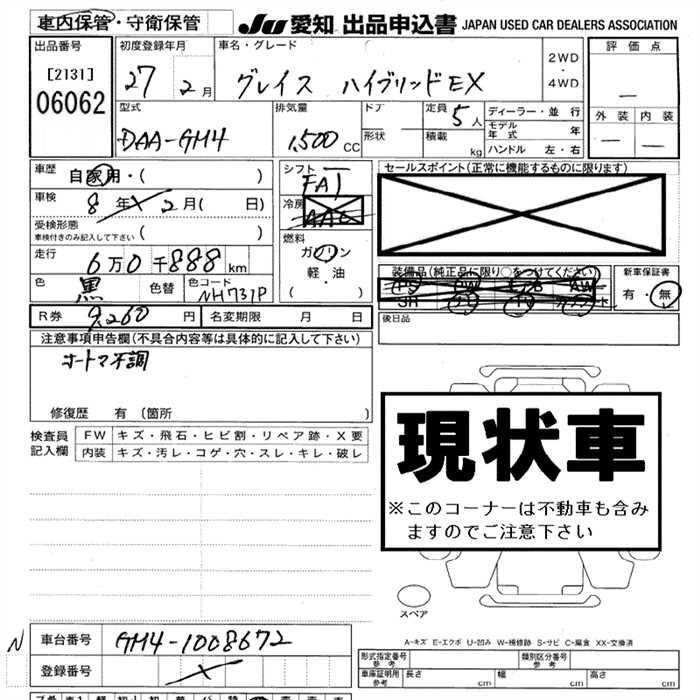 車内保管・守衛保管
JU 愛知 出品申込書 JAPAN USED CAR DEALERS ASSOCIATION
出品番号
[2131]
06062
初度登録年月
27 2月
車名・グレード
グレイス ハイブリッドEX
2WD
・
4WD
評価点
—
外装 内装
— —
型式
DAA-GM4
排気量
1,500 CC
ドア —
形状
定員 5人
積載 kg
ディーラー・並行
モデル年式 年
ハンドル 左・右
車歴 自家用・( )
車検 8年 2月( 日)
受検形態
車検付きのみ記入して下さい ( )
走行 6万0千888km
色 黒 色替
色コード
NH731P
シフト
FAT
冷房
AAC
燃料
ガソリン
軽・油
( )
セールスポイント(正常に機能するものに限ります)
装備品(純正品に限り○をつけてください)
PS PW AW
SR
新車保証書
有・無
後日品
R券 9,260円 名変期限 月 日
注意事項申告欄(不具合内容等は具体的に記入して下さい)
オートマ不調
修復歴 有〔箇所 〕
検査員
記入欄
FW キズ・飛石・ヒビ割・リペア跡・X要
内装 キズ・汚レ・コゲ・穴・スレ・キレ・破レ
現状車
※このコーナーは不動車も含み
ますのでご注意下さい
スペア
A-キズ E-エクボ U-凹み W-補修跡 S-サビ C-腐食 XX-交換済
N
車台番号 GM4-1008672
登録番号
形式指定番号
参考
類別区分番号
参考
車庫証明用
参考
長さ cm 幅 cm 高さ cm